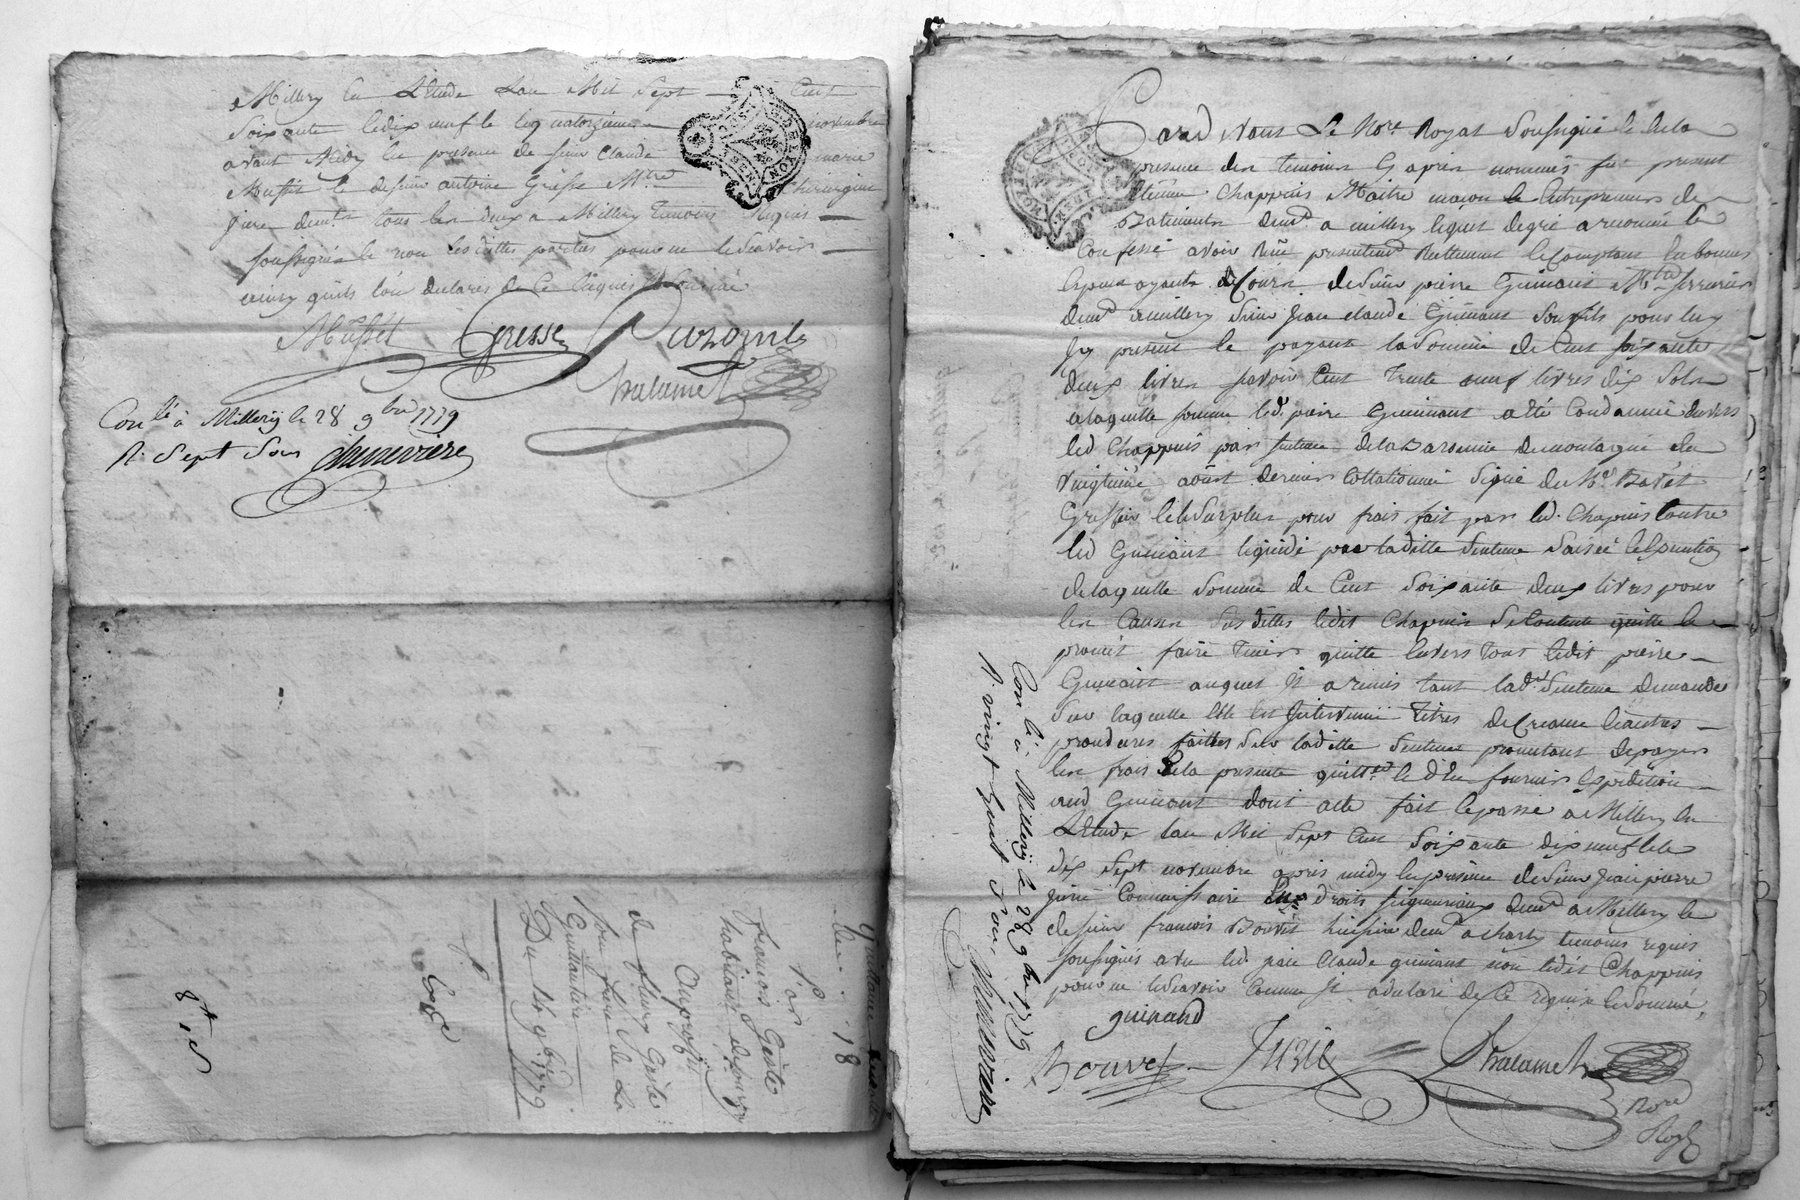 Millery en L'Etude L'an Mil Sept — Cent
Soixante Et dix neuf Et le quatorzieme — novembre
avant Midy En presence de sieur Claude marie
Musset Et de sieur antoine Gresse M.tre Chirurgien
demt. tous les deux a Millery Temoins Requis —
soussignés Et non Les dittes parties pour ne le scavoir —
ainsy quils l'ont declaré de Ce Enquis Et Sommé
Musset Gresse
Thalamet
Con.lé à Millery le 28 9bre 1779
R. Sept Sous Chenevrière
Quittance
18
Par
francois Geste
habitant de
Au profit
de fleury Geste
son frere de La
Guillotiere
Du 14 9bre 1779
Pardevant Le No.re Royal Soussigné Et En la
presence des temoins Cy apres nommés fut present
Etienne Chappuis Maitre maçon Et Entrepreneur de
Batiments demt. a millery lequel de gré a reconnu Et
Confessé avoir Reçu presentement Reellement Et Comptant En bonnes
Especes ayants de Cours de Sieur pierre Guinant M.tre serrurier
demt. a millery Sieur Jean Claude Guinant Son fils pour luy
Icy present Et payant la Somme de Cent soixante
deux livres savoir Cent Trente neuf livres dix Sols
a laquelle somme led. pierre Guinant a été Condamné Envers
led Chappuis par sentence de la Baronnie de montagny du
vingtieme aoust dernier Collationné Signé du
Greffier Et le Surplus pour frais fait par led. Chapuis Contre
led Guinant liquidé par laditte Sentence
de laquelle Somme de Cent Soixante deux livres pour
les Causes Sus dittes ledit Chapuis Se Contente quitte Et
promet faire Tenir quitte Envers Tout ledit pierre —
Guinant auquel Il a remis tant lad. Sentence demande
Sur laquelle Elle Est Intervenue Titres de Creance Et autres —
procedures faittes Sur laditte Sentence promettant de payer
les frais De la presente quitt.ce Et d'En fournir Expedition —
aud Guinant dont acte fait Et passé a Millery En
L'Etude l'an Mil Sept Cent Soixante dix neuf Et le
dix Sept novembre apres midy En presence de Sieur Jean pierre
Jurie Commissaire En droits seigneuriaux demt. a Millery Et
de sieur francois Bouvet huissier demt. a Charly temoins requis
soussignés avec led. Jean Claude guinant non ledit Chappuis
pour ne le scavoir Comme Il a declaré de Ce Requis Et Sommé,
guinand
Bouvet Jurie Thalamet
No.re
Roy.l
Con.lé à Millery le 28 9bre 1779
R. vingt huit Sous Chenevrière